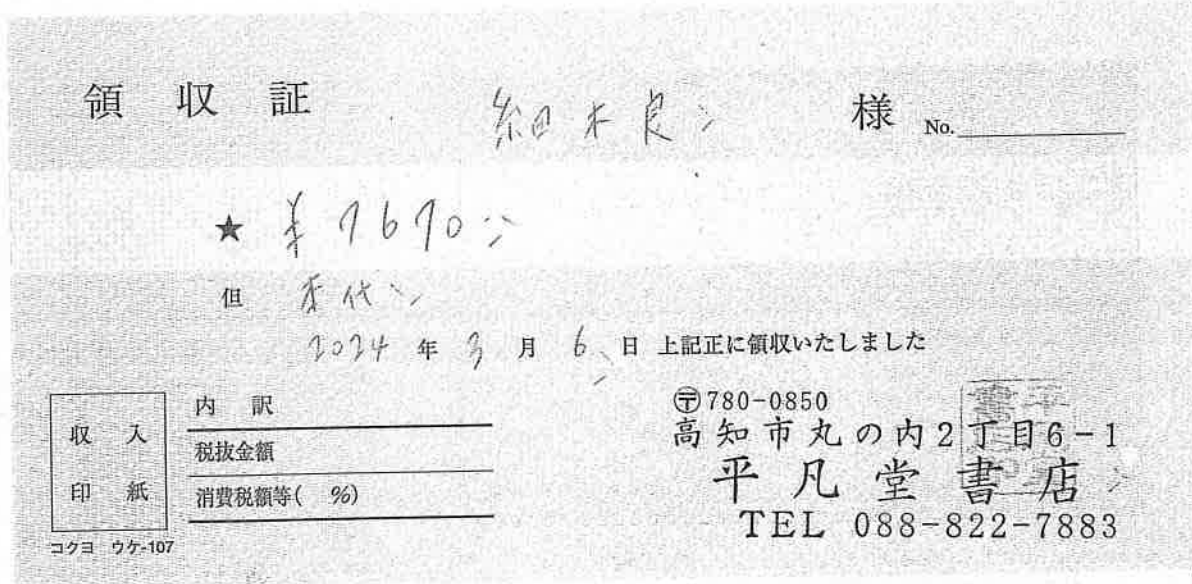 領収証 細木良 様 No.
★ ¥7670
但 本代
2024年3月6日 上記正に領収いたしました
収入
印紙
内訳
税抜金額
消費税額等( %)
コクヨ ウケ-107
〒780-0850
高知市丸の内2丁目6-1
平凡堂書店
TEL 088-822-7883